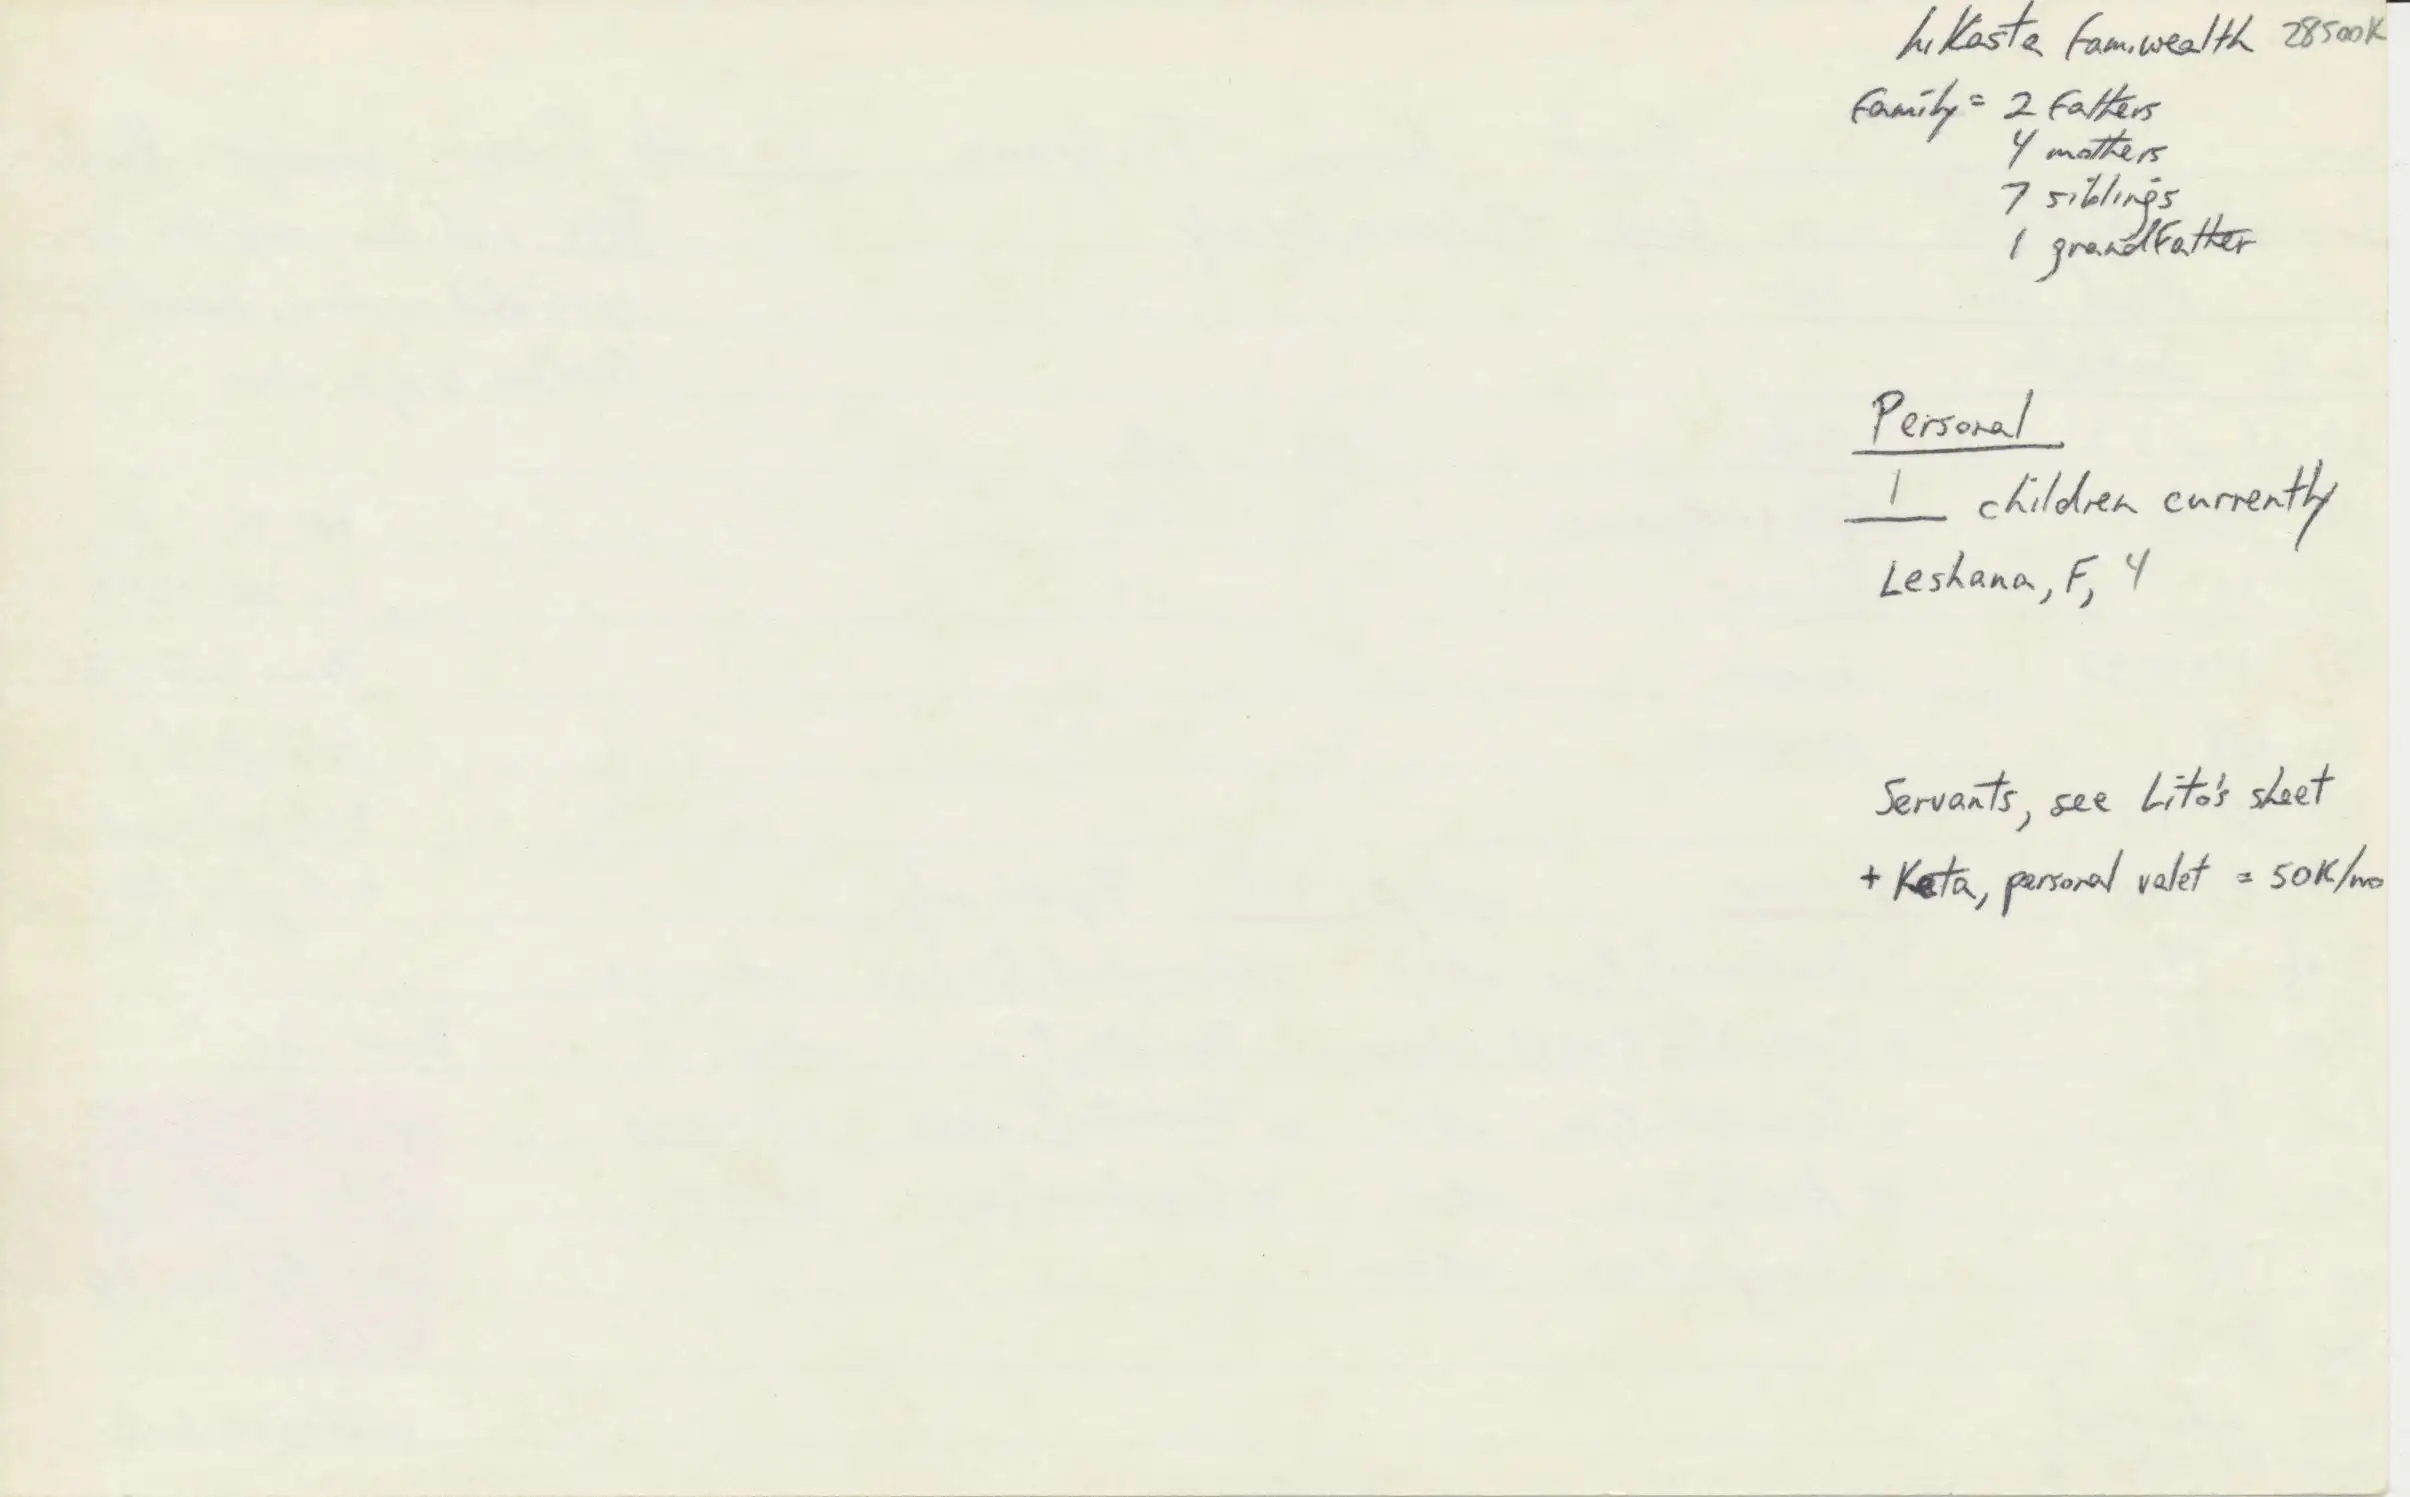 hiKasta fam.wealth 28500K
Family = 2 Fathers
4 mothers
7 siblings
1 grandFather
Personal
1 children currently
Leshana, F, 4
Servants, see Lito's sheet
+ Keta, personal valet = 50K/mo